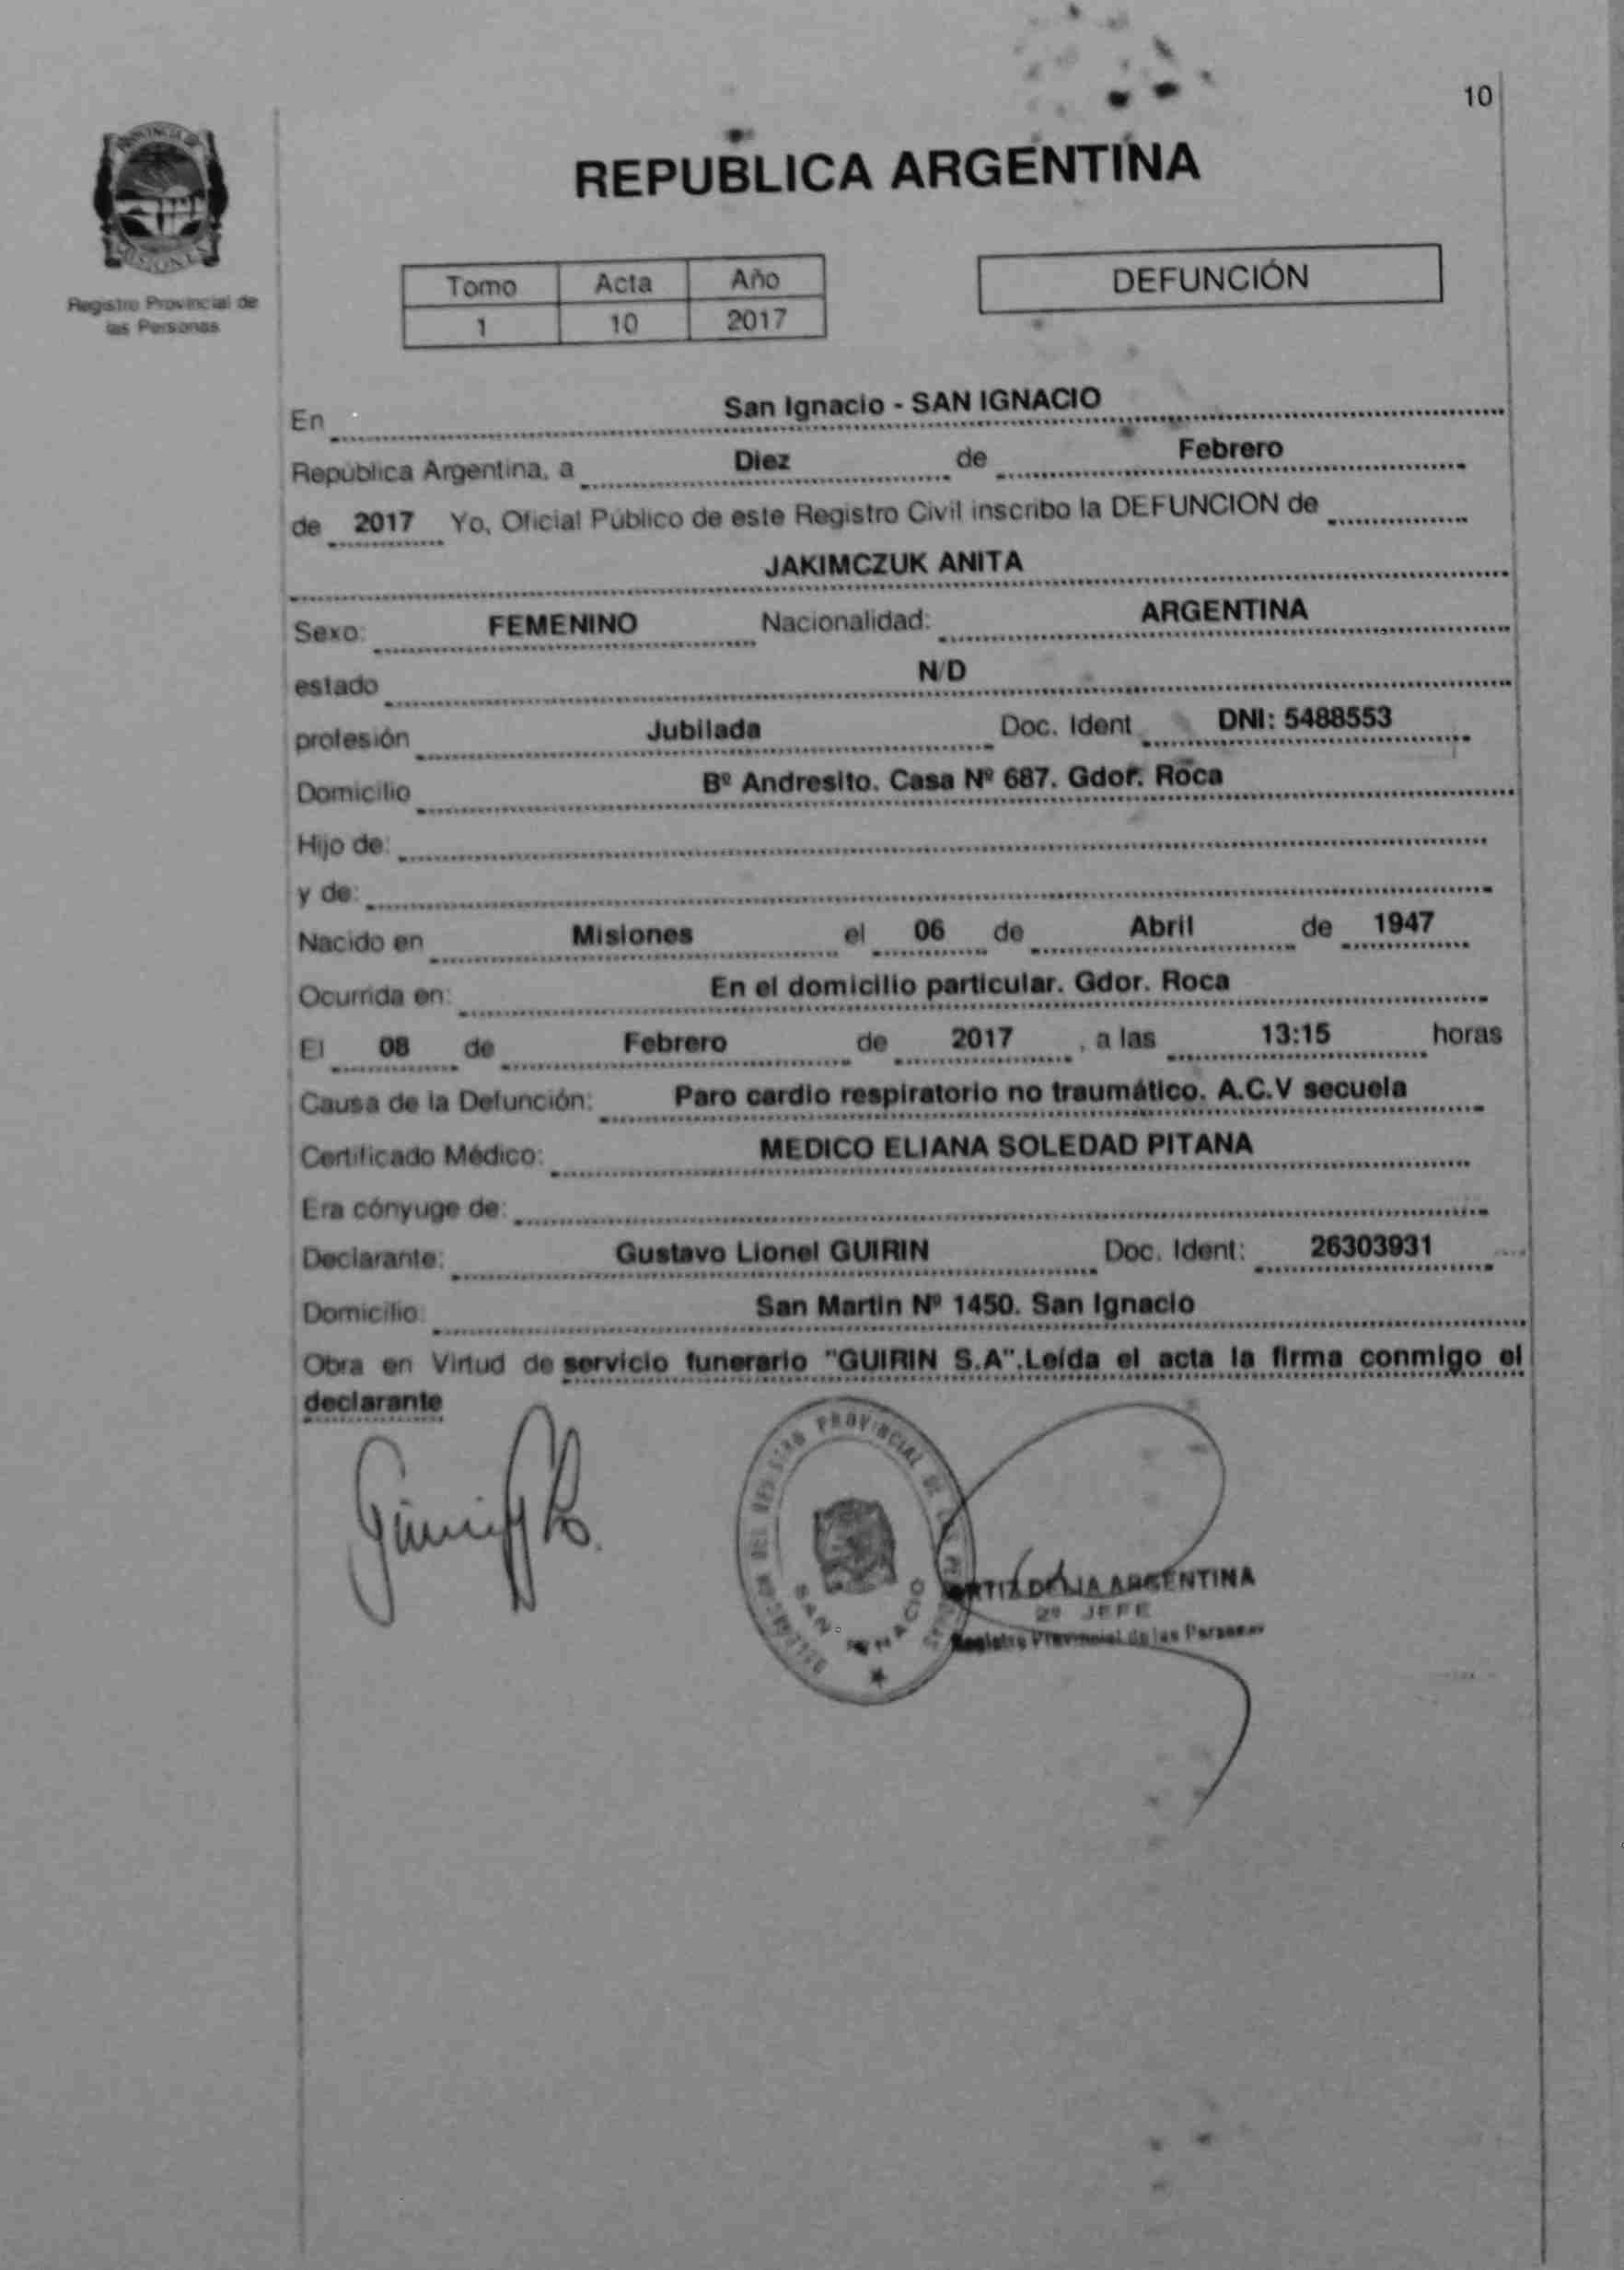 10
PROVINCIA DE
MISIONES
Registro Provincial de
las Personas
REPUBLICA ARGENTINA
Tomo Acta Año
1 10 2017
DEFUNCIÓN
En San Ignacio - SAN IGNACIO
República Argentina, a Diez de Febrero
de 2017 Yo, Oficial Público de este Registro Civil inscribo la DEFUNCION de
JAKIMCZUK ANITA
Sexo: FEMENINO Nacionalidad: ARGENTINA
estado N/D
profesión Jubilada Doc. Ident DNI: 5488553
Domicilio Bº Andresito. Casa Nº 687. Gdor. Roca
Hijo de:
y de:
Nacido en Misiones el 06 de Abril de 1947
Ocurrida en: En el domicilio particular. Gdor. Roca
El 08 de Febrero de 2017 , a las 13:15 horas
Causa de la Defunción: Paro cardio respiratorio no traumático. A.C.V secuela
Certificado Médico: MEDICO ELIANA SOLEDAD PITANA
Era cónyuge de:
Declarante: Gustavo Lionel GUIRIN Doc. Ident: 26303931
Domicilio: San Martin Nº 1450. San Ignacio
Obra en Virtud de servicio funerario "GUIRIN S.A".Leída el acta la firma conmigo el
declarante
REGISTRO PROVINCIAL DE
SAN IGNACIO
ARGENTINA
2º JEFE
Registro Provincial de las Personas